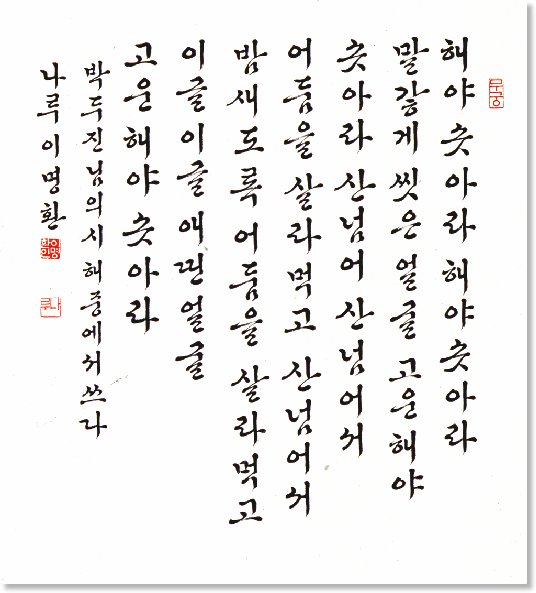 무궁
해야 솟아라 해야 솟아라
말갛게 씻은 얼굴 고운 해야
솟아라 산 넘어 산 넘어서
어둠을 살라먹고 산 넘어서
밤새도록 어둠을 살라먹고
이글이글 애띤 얼굴
고운 해야 솟아라
박두진님의 시 해 중에서 쓰다
나루 이명환
나루